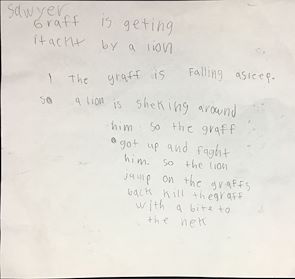 Sawyer
Graff is geting
itacht by a lion
1 the graff is Falling asreep.
so a lion is sheking around
him so the graff
got up and faght
him. so the lion
jump on the graffs
back hill thegraff
with a bite to
the nek